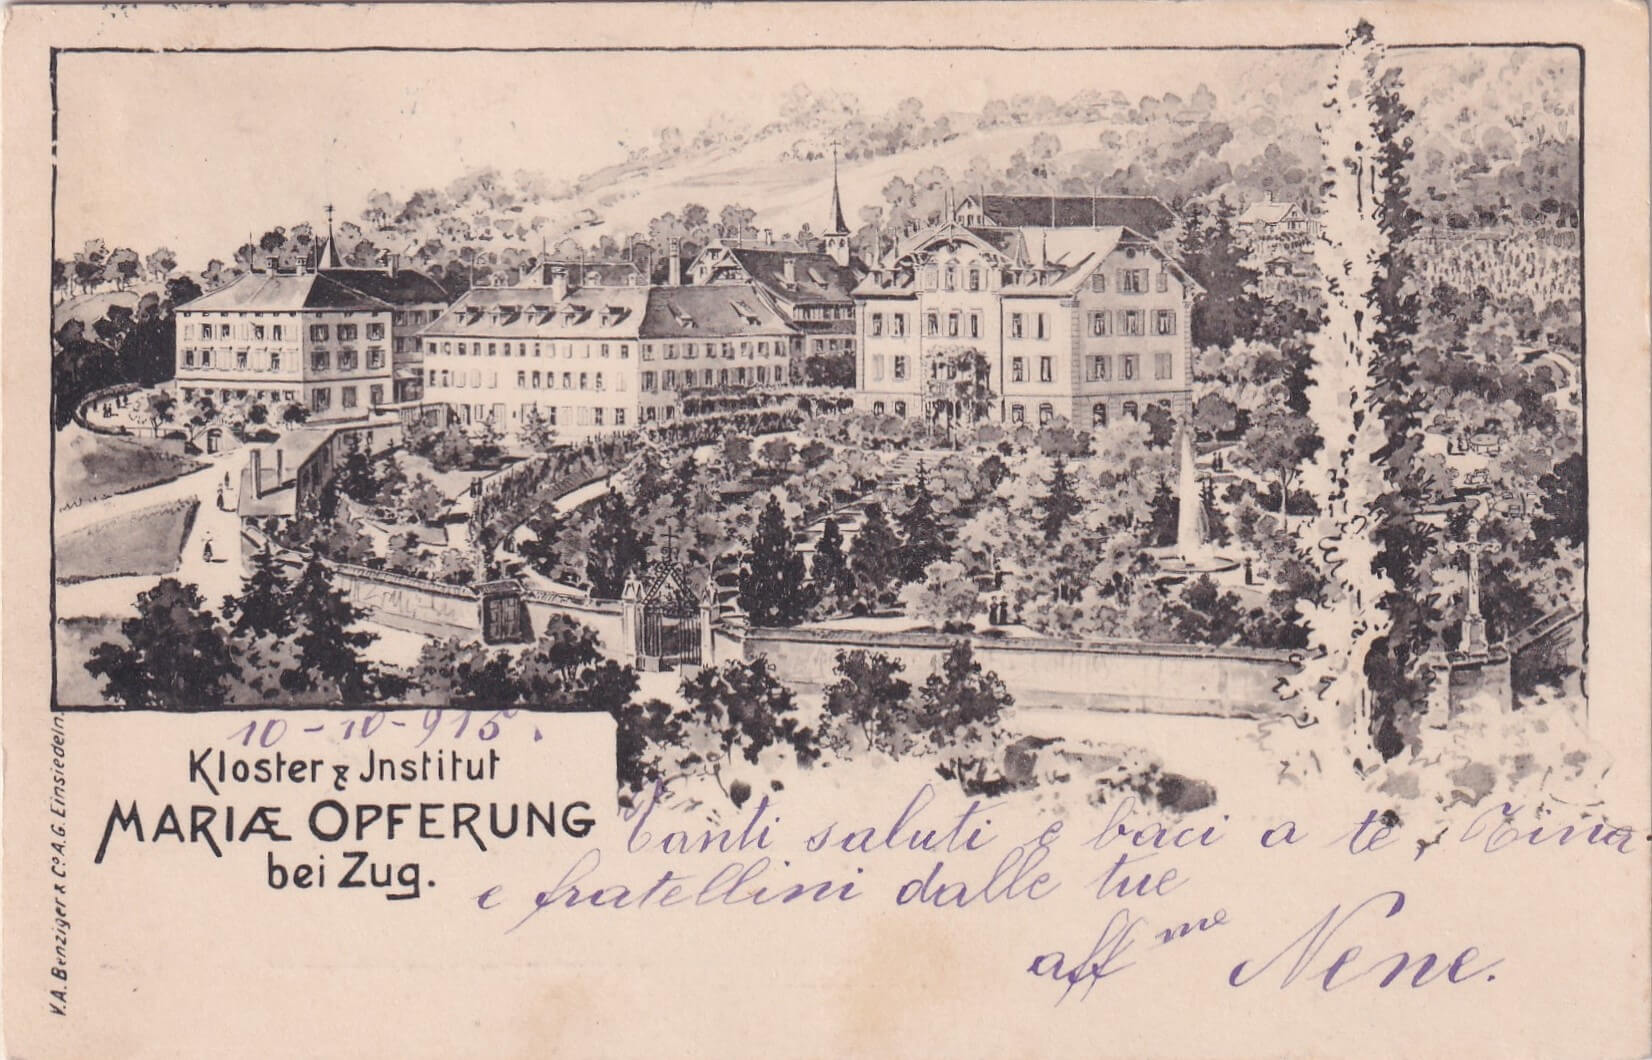 10-10-915.
Kloster & Jnstitut
MARIÆ OPFERUNG
bei Zug.
Tanti saluti e baci a te, Nina
e fratellini dalle tue
aff me Nene.
V.A. Benziger & Co. A.G. Einsiedeln.